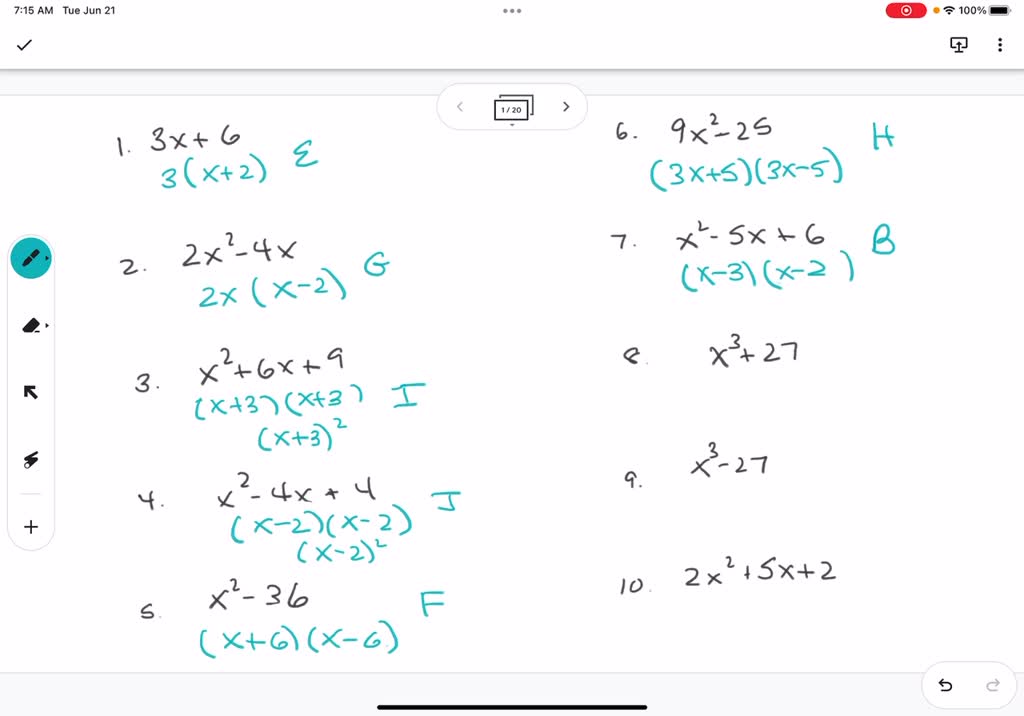 7:15 AM Tue Jun 21
100%
1 / 20
1. 3x + 6
3(x+2) E
2. 2x² - 4x
2x(x-2) G
3. x² + 6x + 9
(x+3)(x+3) I
(x+3)²
4. x² - 4x + 4
(x-2)(x-2) J
(x-2)²
5. x² - 36
(x+6)(x-6) F
6. 9x² - 25
(3x+5)(3x-5) H
7. x² - 5x + 6
(x-3)(x-2) B
8. x³ + 27
9. x³ - 27
10. 2x² + 5x + 2